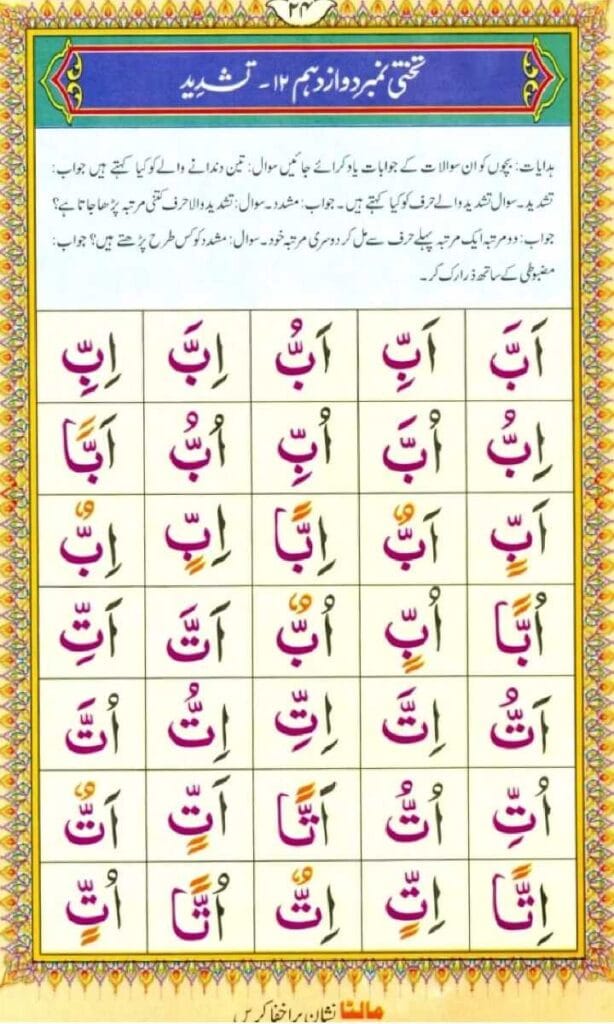 ۲۴
تختی نمبر دوازدہم ۱۲ - تشدید
ہدایات: بچوں کو ان سوالات کے جوابات یاد کرائے جائیں سوال: تین دندانے والے کو کیا کہتے ہیں جواب:
تشدید۔ سوال تشدید والے حرف کو کیا کہتے ہیں۔ جواب: مشدد۔ سوال: تشدید والا حرف کتنی مرتبہ پڑھا جاتا ہے؟
جواب: دو مرتبہ ایک مرتبہ پہلے حرف سے مل کر دوسری مرتبہ خود۔ سوال: مشدد کو کس طرح پڑھتے ہیں؟ جواب:
مضبوطی کے ساتھ ذرا رک کر۔
اَبَّ اَبِّ اَبُّ اِبَّ اِبِّ
اِبُّ اُبَّ اُبِّ اُبُّ اَبًّا
اَبٍّ اَبٌّ اِبًّا اِبٍّ اِبٌّ
اُبًّا اُبٍّ اُبٌّ اَتَّ اَتِّ
اَتُّ اِتَّ اِتِّ اِتُّ اُتَّ
اُتِّ اُتُّ اَتًّا اَتٍّ اَتٌّ
اِتًّا اِتٍّ اِتٌّ اُتًّا اُتٍّ
مالٹا نشان پر اخفا کریں